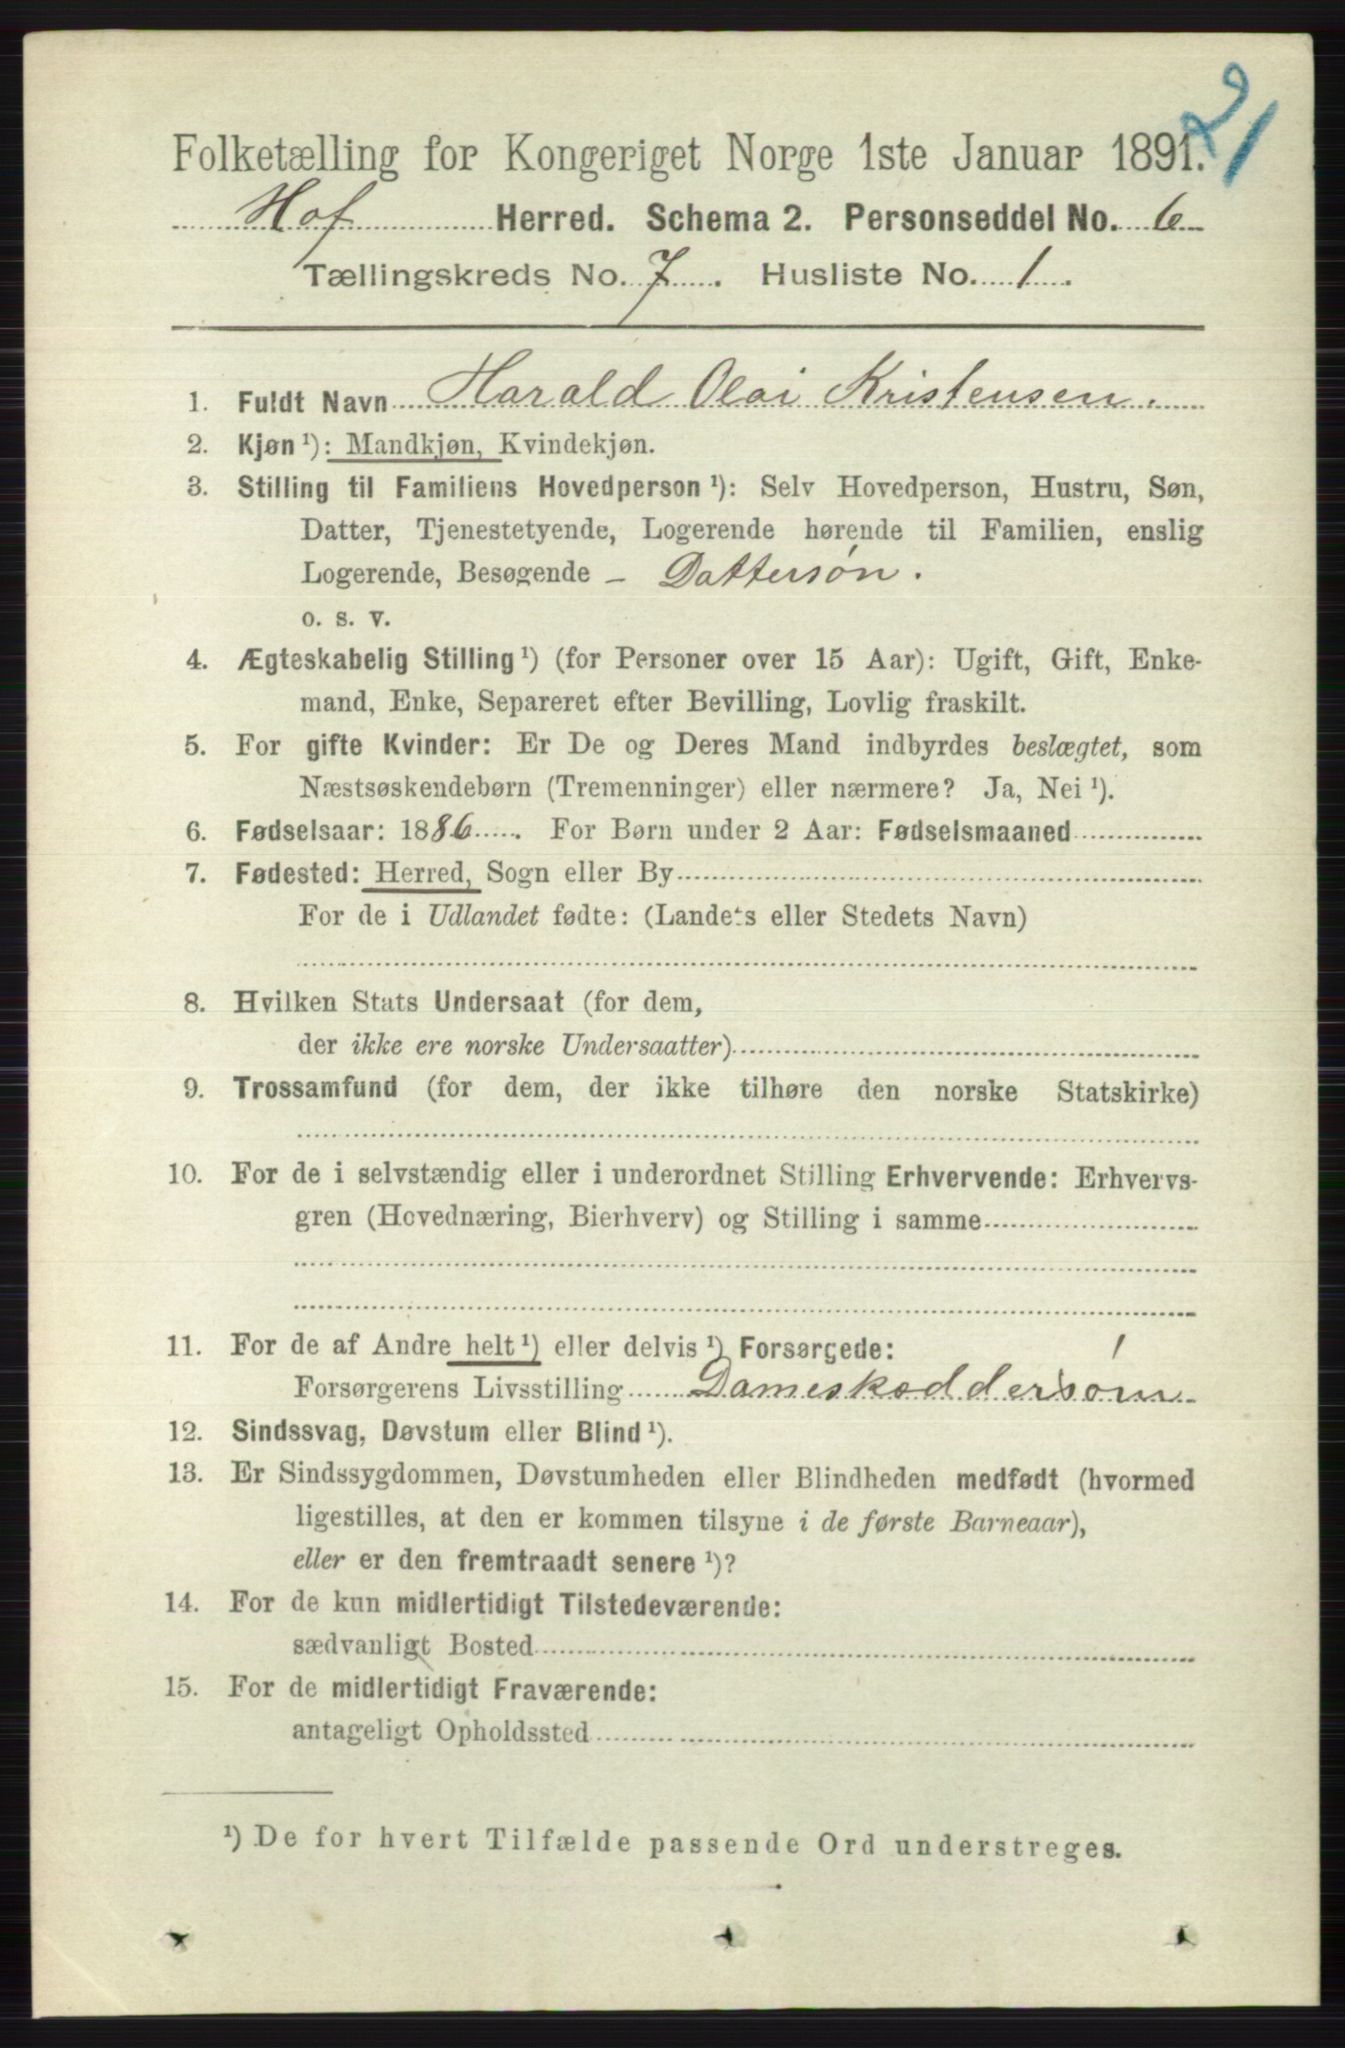 21
Folketælling for Kongeriget Norge 1ste Januar 1891.
Hof Herred. Schema 2. Personseddel No. 6
Tællingskreds No. 7. Husliste No. 1.
1. Fuldt Navn Harald Olai Kristensen.
2. Kjøn ¹): Mandkjøn, Kvindekjøn.
3. Stilling til Familiens Hovedperson ¹): Selv Hovedperson, Hustru, Søn,
Datter, Tjenestetyende, Logerende hørende til Familien, enslig
Logerende, Besøgende – Dattersøn.
o. s. v.
4. Ægteskabelig Stilling ¹) (for Personer over 15 Aar): Ugift, Gift, Enke-
mand, Enke, Separeret efter Bevilling, Lovlig fraskilt.
5. For gifte Kvinder: Er De og Deres Mand indbyrdes beslægtet, som
Næstsøskendebørn (Tremenninger) eller nærmere? Ja, Nei ¹).
6. Fødselsaar: 1886. For Børn under 2 Aar: Fødselsmaaned
7. Fødested: Herred, Sogn eller By
For de i Udlandet fødte: (Landets eller Stedets Navn)
8. Hvilken Stats Undersaat (for dem,
der ikke ere norske Undersaatter)
9. Trossamfund (for dem, der ikke tilhøre den norske Statskirke)
10. For de i selvstændig eller i underordnet Stilling Erhvervende: Erhvervs-
gren (Hovednæring, Bierhverv) og Stilling i samme
11. For de af Andre helt ¹) eller delvis ¹) Forsørgede:
Forsørgerens Livsstilling Dameskæddersøm
12. Sindssvag, Døvstum eller Blind ¹).
13. Er Sindssygdommen, Døvstumheden eller Blindheden medfødt (hvormed
ligestilles, at den er kommen tilsyne i de første Barneaar),
eller er den fremtraadt senere ¹)?
14. For de kun midlertidigt Tilstedeværende:
sædvanligt Bosted
15. For de midlertidigt Fraværende:
antageligt Opholdssted
¹) De for hvert Tilfælde passende Ord understreges.